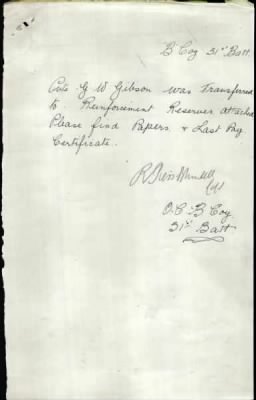 B Coy 31st Batt.
Pvte G W Gibson was Transferred
to Reinforcement Reserves attached
Please find Papers & Last Pay
Certificate.
Capt
O.C. B Coy
31st Batt